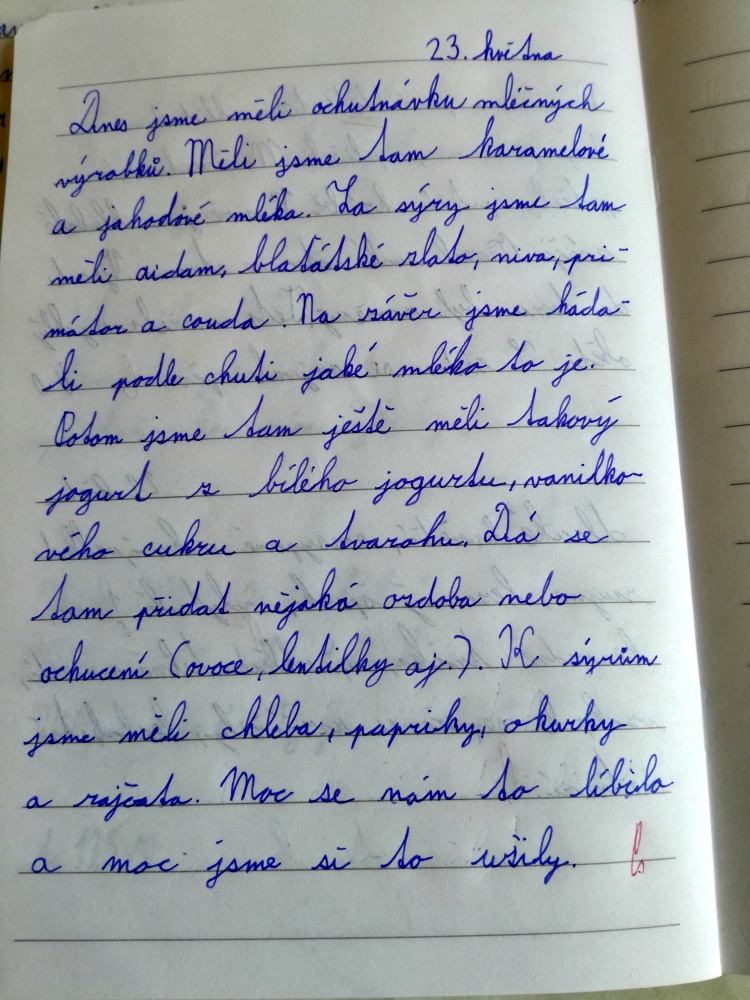 23. května
Dnes jsme měli ochutnávku mléčných
výrobků. Měli jsme tam karamelové
a jahodové mléka. Za sýry jsme tam
měli aidam, blaťátské zlato, niva, pri-
mátor a couda. Na závěr jsme háda-
li podle chuti jaké mléko to je.
Potom jsme tam ještě měli takový
jogurt z bílého jogurtu, vanilko-
vého cukru a tvarohu. Dá se
tam přidat nějaká ozdoba nebo
ochucení (ovoce, lentilky aj.). K sýrům
jsme měli chleba, papriky, okurky
a rajčata. Moc se nám to líbilo
a moc jsme si to užily.